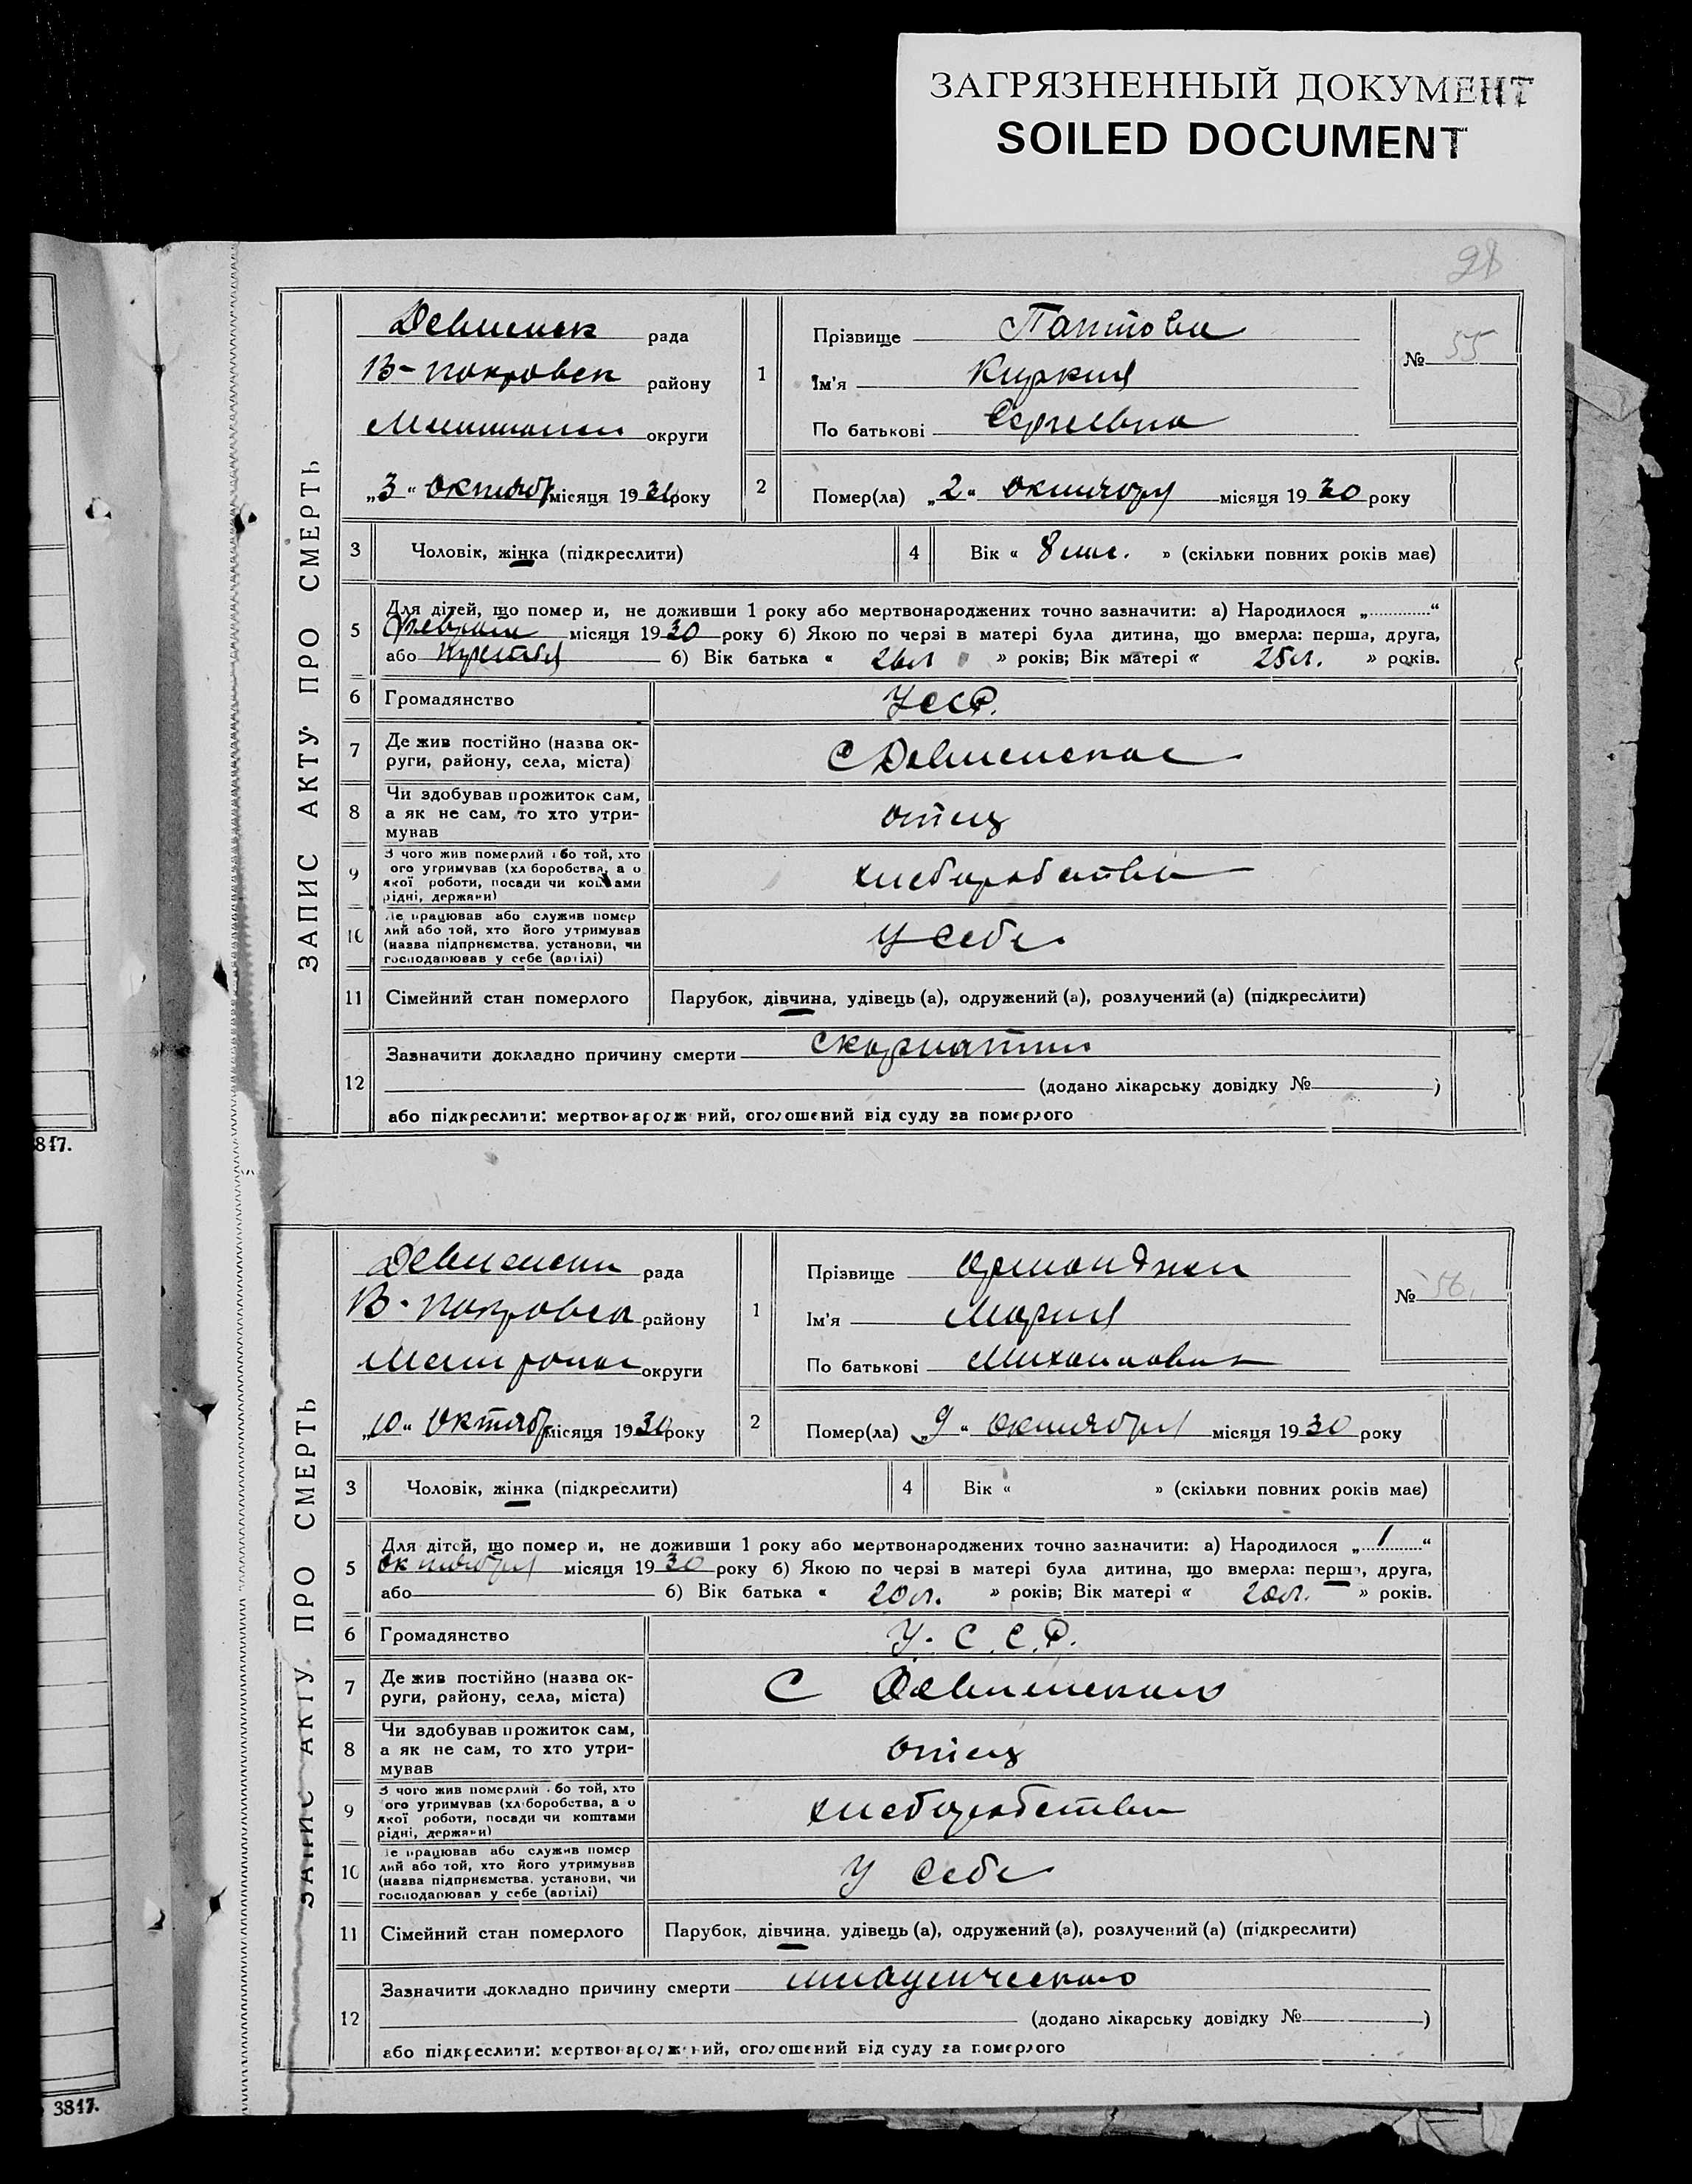 ЗАГРЯЗНЕННЫЙ ДОКУМЕНТ
SOILED DOCUMENT
28
ЗАПИС АКТУ ПРО СМЕРТЬ
рада
В-Покровск району
округи
„3“ Октябр місяця 1930 року
1
Прізвище
Ім'я
По батькові Сергеевна
№ 55
2
Помер(ла) „2“ октября місяця 1930 року
3 Чоловік, жінка (підкреслити)
4 Вік « 8 мис. » (скільки повних років має)
5 Для дітей, що помер и, не доживши 1 року або мертвонароджених точно зазначити: а) Народилося „............“
місяця 1930 року б) Якою по черзі в матері була дитина, що вмерла: перша, друга,
або третья б) Вік батька « 26 л » років; Вік матері « 25 л. » років.
6 Громадянство УССР.
7 Де жив постійно (назва ок-
руги, району, села, міста)
8 Чи здобував прожиток сам,
а як не сам, то хто утри-
мував
отец
9 З чого жив померлий або той, хто
ого утримував (хл боробства, а о
якої роботи, посади чи коштами
рідні, держави)
хлеборобство
10 Де працював або служив помер
лий або той, хто його утримував
(назва підприємства, установи, чи
господарював у себе (артілі)
у себе
11 Сімейний стан померлого Парубок, дівчина, удівець (а), одружений (а), розлучений (а) (підкреслити)
12 Зазначити докладно причину смерти скорлатина
(додано лікарську довідку № )
або підкреслити: мертвонародж ний, оголошений від суду за померлого
847.
ЗАПИС АКТУ ПРО СМЕРТЬ
рада
В-Покровск району
округи
„10“ Октябр місяця 1930 року
1
Прізвище
Ім'я Мария
По батькові Михайловна
№ 56.
2
Помер(ла) „9“ октября місяця 1930 року
3 Чоловік, жінка (підкреслити)
4 Вік « » (скільки повних років має)
5 Для дітей, що помер и, не доживши 1 року або мертвонароджених точно зазначити: а) Народилося „..1..“
октября місяця 1930 року б) Якою по черзі в матері була дитина, що вмерла: перша, друга,
або б) Вік батька « 20 л. » років; Вік матері « 20 л. » років.
6 Громадянство У. С. С. Р.
7 Де жив постійно (назва ок-
руги, району, села, міста)
8 Чи здобував прожиток сам,
а як не сам, то хто утри-
мував
отец
9 З чого жив померлий або той, хто
ого утримував (хл боробства, а о
якої роботи, посади чи коштами
рідні, держави)
хлеборобство
10 Де працював або служив помер
лий або той, хто його утримував
(назва підприємства, установи, чи
господарював у себе (артілі)
у себе
11 Сімейний стан померлого Парубок, дівчина, удівець (а), одружений (а), розлучений (а) (підкреслити)
12 Зазначити докладно причину смерти младенческого
(додано лікарську довідку № )
або підкреслити: мертвонародж ний, оголошений від суду за померлого
3847.